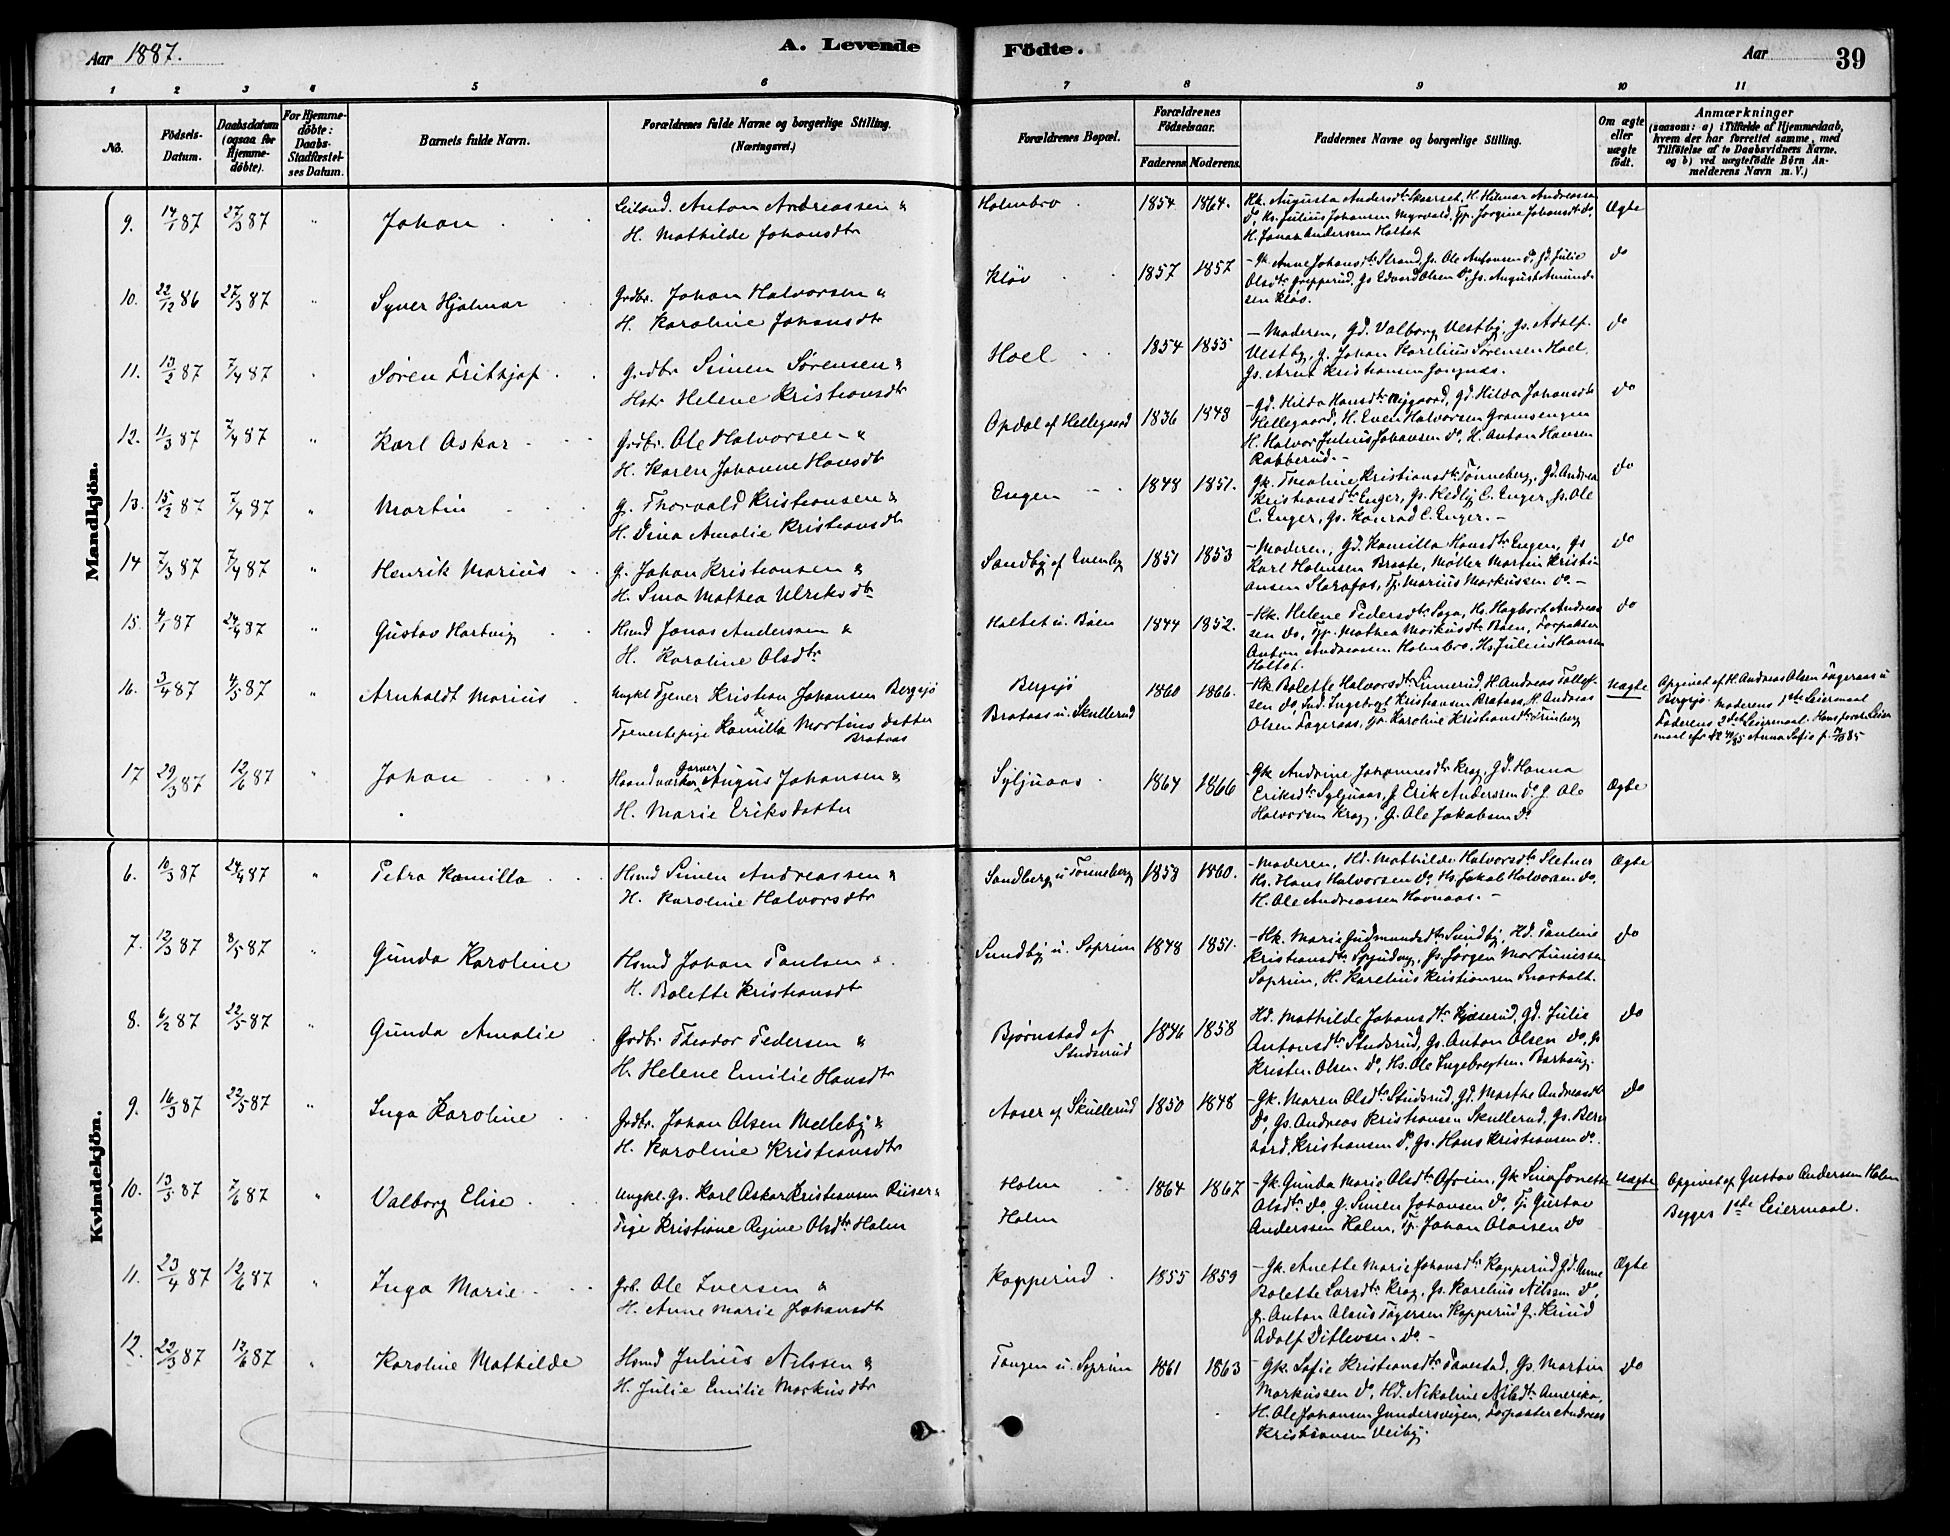 Aar 1887.
A. Levende
Födte.
Aar
39
1 2 3 4 5 6 7 8 9 10 11
No.
Födsels-Datum.
Daabsdatum (ogsaa for Hjemmedöbte).
For Hjemmedöbte: Daabs-Stadfæstelses Datum.
Barnets fulde Navn.
Forældrenes fulde Navne og borgerlige Stilling. (Næringsvei.)
Forældrenes Bopæl.
Forældrenes Födselsaar.
Faderens. Moderens.
Faddernes Navne og borgerlige Stilling.
Om ægte eller uægte födt.
Anmærkninger
(saasom: a) i Tilfælde af Hjemmedaab, hvem der har forrettet samme, med Tilföielse af to Daabsvidners Navne. og b) ved uægtefödte Börn Anmelderens Navn m. V.)
Mandkjön.
9. 14/1 87 27/3 87 " Johan
Leiland. Anton Andreassen &
H. Mathilde Johansdtr
Holmbro 1854 1864.
Kk. Augusta Andersdtr Skaarset, H. Hilmar Andreassen
do, Ks. Julius Johansen Myrvold, Tp. Jørgine Johansdtr do,
H. Jonas Anderssen Holtet
Ægte
10. 22/12 86 27/3 87 " Syver Hjalmar
Grdbr. Johan Halvorsen &
H. Karoline Johansdtr
Kløv 1857 1857
- Gk. Anne Johansdtr Strand, Gs. Ole Antonsen do, Gd. Julie
Olsdtr Gripperud, Gs Edvard Olsen do, Gs. August Amund-
sen Kløv.
do
11. 13/2 87 7/4 87 " Søren Frithjof
Grdbr Simen Sørensen &
Hstr Helene Kristiansdtr
Hoel 1854 1855
- Moderen, Gd. Valborg Vestby, Gs. Adolf
Vestby, G. Johan Karelius Sørensen Hoel,
Gs. Arnt Kristiansen
do
12. 11/3 87 7/4 87 " Karl Oskar
Grdbr. Ole Halvorsen &
H. Karen Johanne Hansdtr
Opdal af Hellegaard 1836 1848
- Gd. Hilda Hansdtr Nygaard, Gd. Hilda Johansdtr
Hellegaard, H. Even Halvorsen Gramsengen
H. Halvor Julius Johansen do, H. Anton Hansen
Rabberud. -
do
13. 15/2 87 7/4 87 " Martin
G. Thorvald Kristiansen &
H. Dina Amalie Kristiansdtr
Engen 1848 1851.
Gk. Theoline Kristiansdtr Tønneberg, Gd. Andrea
Kristiansdtr Enger, Gs. Hedly C. Enger, Gs. Ole
C. Enger, Gs. Konrad C. Enger. -
do
14 7/3 87 7/4 87 " Henrik Marius
G. Johan Kristiansen &
H. Sina Mathea Ulriksdtr
Sandby af Evenby 1851 1853
- Moderen, Gd. Kamilla Hansdtr Engen, Gs
Karl Halvorsen Braate, Møller Martin Kristi-
ansen Slorafos, Tj. Marius Markussen do. -
do
15. 4/1 87 24/4 87 " Gustav Hartvig
Hsmd Jonas Anderssen &
H. Karoline Olsdtr
Holtet u. Båen 1844 1852.
- Kk. Helene Pedersdtr Saga, Hs. Hagbart Andreas-
sen do, Tp. Mathea Markusdtr Båen, Forpakter
Anton Andreassen Holmbro, Hs. Julius Hansen
Holtet.
do
16. 3/4 87 4/5 87 " Arnholdt Marius
Ungkl Tjener Kristian Johansen Bergsjø
Tjenestepige Kamilla Martinsdatter
Brataas
Bergsjø
Brataas u. Skullerud 1860 1866.
- Kk. Bolette Halvorsdtr Linnerud, H. Andreas Tollef-
sen do, Ind. Ingebregt Kristiansen Brataas, H. Andreas
Olsen Fageraas, Gk Karoline Kristiansdtr
Uægte
Opgivet af H. Andreas Olsen Fageraas u
Bergsjø. Moderens 1ste Leiermaal
Faderens 2det Leiermaal. Hans forste Leier-
maal Anna Sofie f. 85
17 29/3 87 12/6 87 " Johan
Haandværker Garver August Johansen &
H. Marie Eriksdatter
Syljuaas 1864 1866
Gk Andrine Johannesdtr Krog, Gd. Hanna
Eriksdtr Syljuaas, G. Erik Anderssen do, G. Ole
Halvorsen Krog, G. Ole Jakobsen do
Ægte
Kvindekjön.
6. 10/3 87 24/4 87 " Petra Kamilla
Hsmd Simen Andreassen &
H. Karoline Halvorsdtr
Sandberg u Tønneberg 1858 1860.
- Moderen, Hd. Mathilde Halvorsdtr Sletner
Hs. Hans Halvorsen do, Hs. Jakob Halvorsen do,
H. Ole Andreassen Havnaas. -
Ægte
7. 12/3 87 8/5 87 " Gunda Karoline
Hsmd Johan Paulsen &
H. Bolette Kristiansdtr
Sundby u. Soprim 1848 1851.
- Hk. Marie Gudmundsdtr Sundby, Hd. Pauline
Kristiansdtr, Gs. Jørgen Martiniussen
Soprim, H. Karelius Kristiansen Snarholt.
do
8. 6/2 87 22/5 87 " Gunda Amalie
Grdbr. Theodor Pedersen &
H. Helene Emilie Hansdtr
Bjørnstad af
Studsrud 1846 1858
Hd. Mathilde Johansdtr Kjæserud, Gd. Julie
Antonsdtr Studsrud, Gs. Anton Olsen do, Gs
Kristen Olsen do, Hs. Ole Ingebregtsen Barhaug.
do
9. 16/3 87 22/5 87 " Inga Karoline
Grdbr. Johan Olsen Melleby &
H. Karoline Kristiansdtr
Aaser af Skullerud 1850 1848
- Gk. Maren Olsdtr Studsrud, Gd. Marthe Andreasdtr
do, Gs. Andreas Kristiansen Skullerud, Gs. Bern-
hard Kristiansen do, Gs. Hans Kristiansen do.
do
10. 13/5 87 7/6 87 " Valborg Elise
Ungkl. Gs. Karl Oskar Kristiansen Riiser &
Pige Kristiane Regine Olsdtr Holm
Holm
Holm 1864 1867
- Gk. Gunda Marie Olsdtr, Gk Sina Jonette
Olsdtr do, G. Simen Johansen do, Tj. Gustav
Anderssen Holm, Tj. Johan Olaisen do
Uægte
Opgivet af Gustav Andersen Holm
Begges 1ste Leiermaal.
11. 23/4 87 12/6 87 " Inga Marie
Grb. Ole Iversen &
H. Anne Marie Johansdtr
Kopperud 1855 1859
- Gk. Anette Marie Johansdtr Kopperud, Gd. Anne
Bolette Larsdtr Krog, Gs. Karelius Nilssen do,
G. Anton Olaus Pagersen Kopperud G. Knud
Adolf Ditlevsen do -
Ægte
12. 22/3 87 12/6 87 " Karoline Mathilde
Hsmd Julius Nilssen &
H. Julie Emilie Markusdtr
Tangen u. Soprim 1861 1863
- Gk. Sofie Kristiansdtr Tavestad, Gs. Martin
Markussen do, Hd. Nikoline Nilsdtr Amerika,
H. Ole Johansen Gundersvigen, Forpakter Andreas
Kristiansen Veiby.
do